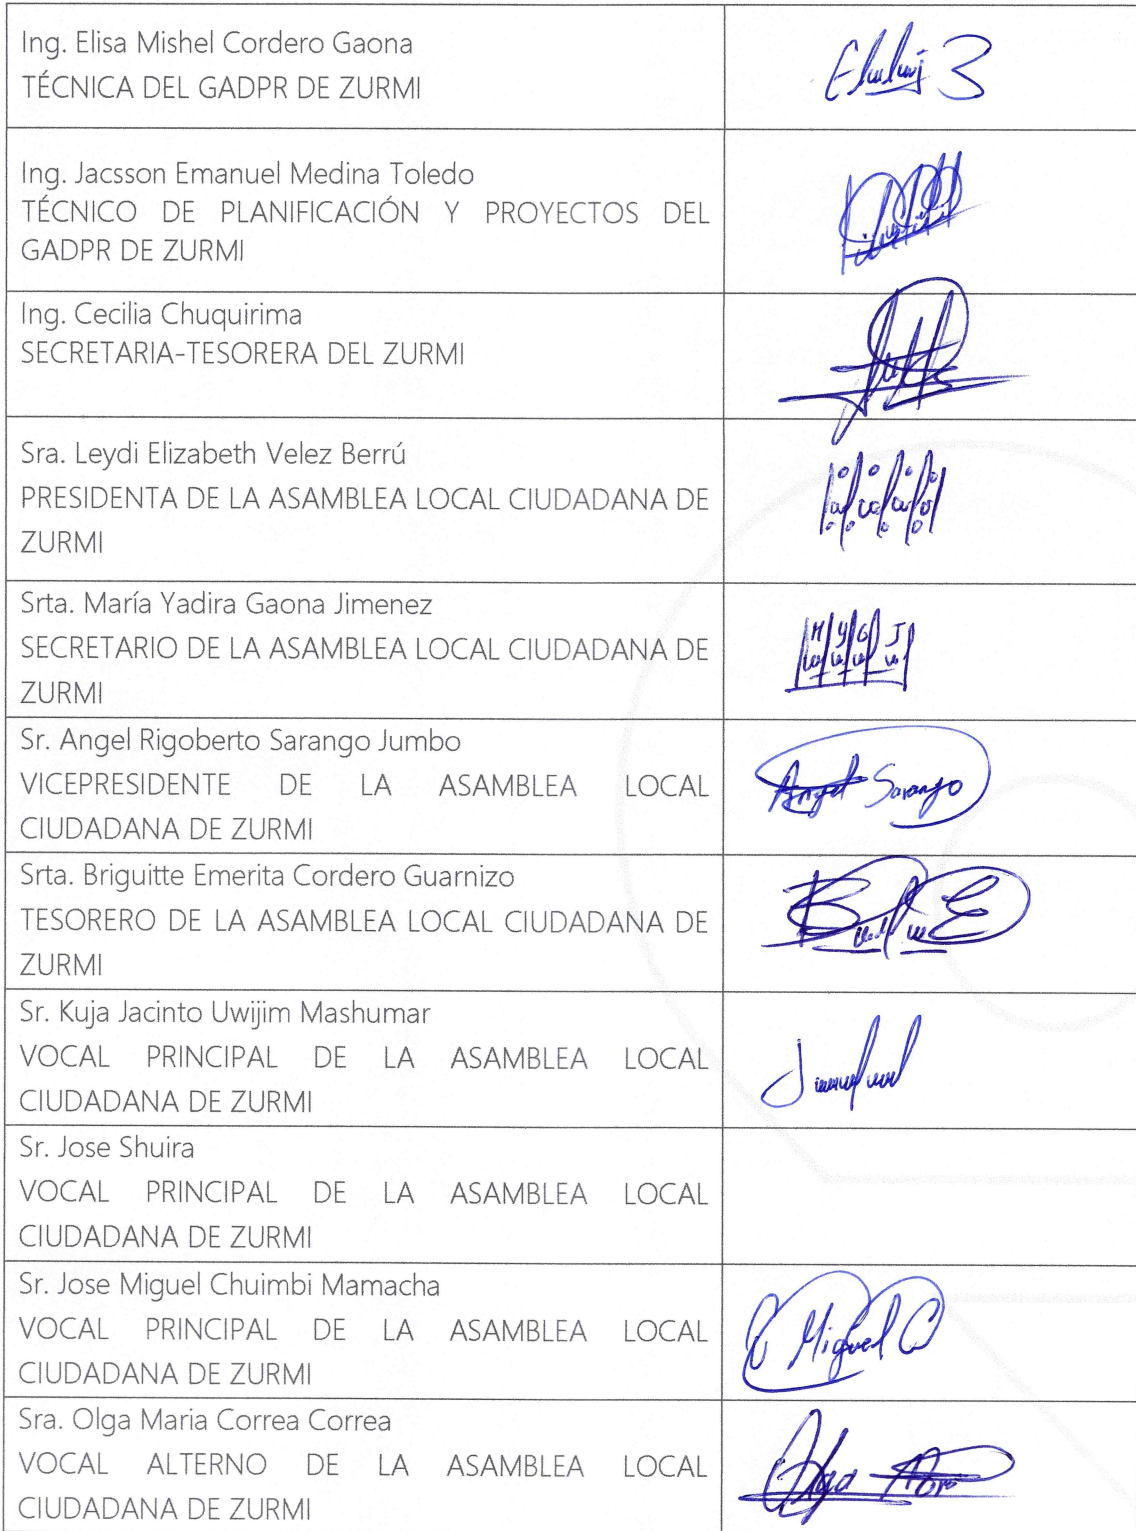 Ing. Elisa Mishel Cordero Gaona
TÉCNICA DEL GADPR DE ZURMI
Ing. Jacsson Emanuel Medina Toledo
TÉCNICO DE PLANIFICACIÓN Y PROYECTOS DEL
GADPR DE ZURMI
Ing. Cecilia Chuquirima
SECRETARIA-TESORERA DEL ZURMI
Sra. Leydi Elizabeth Velez Berrú
PRESIDENTA DE LA ASAMBLEA LOCAL CIUDADANA DE
ZURMI
Srta. María Yadira Gaona Jimenez
SECRETARIO DE LA ASAMBLEA LOCAL CIUDADANA DE
ZURMI
M Y G J
Sr. Angel Rigoberto Sarango Jumbo
VICEPRESIDENTE DE LA ASAMBLEA LOCAL
CIUDADANA DE ZURMI
Angel Sarango
Srta. Briguitte Emerita Cordero Guarnizo
TESORERO DE LA ASAMBLEA LOCAL CIUDADANA DE
ZURMI
Sr. Kuja Jacinto Uwijim Mashumar
VOCAL PRINCIPAL DE LA ASAMBLEA LOCAL
CIUDADANA DE ZURMI
Sr. Jose Shuira
VOCAL PRINCIPAL DE LA ASAMBLEA LOCAL
CIUDADANA DE ZURMI
Sr. Jose Miguel Chuimbi Mamacha
VOCAL PRINCIPAL DE LA ASAMBLEA LOCAL
CIUDADANA DE ZURMI
Miguel C
Sra. Olga Maria Correa Correa
VOCAL ALTERNO DE LA ASAMBLEA LOCAL
CIUDADANA DE ZURMI
Olga